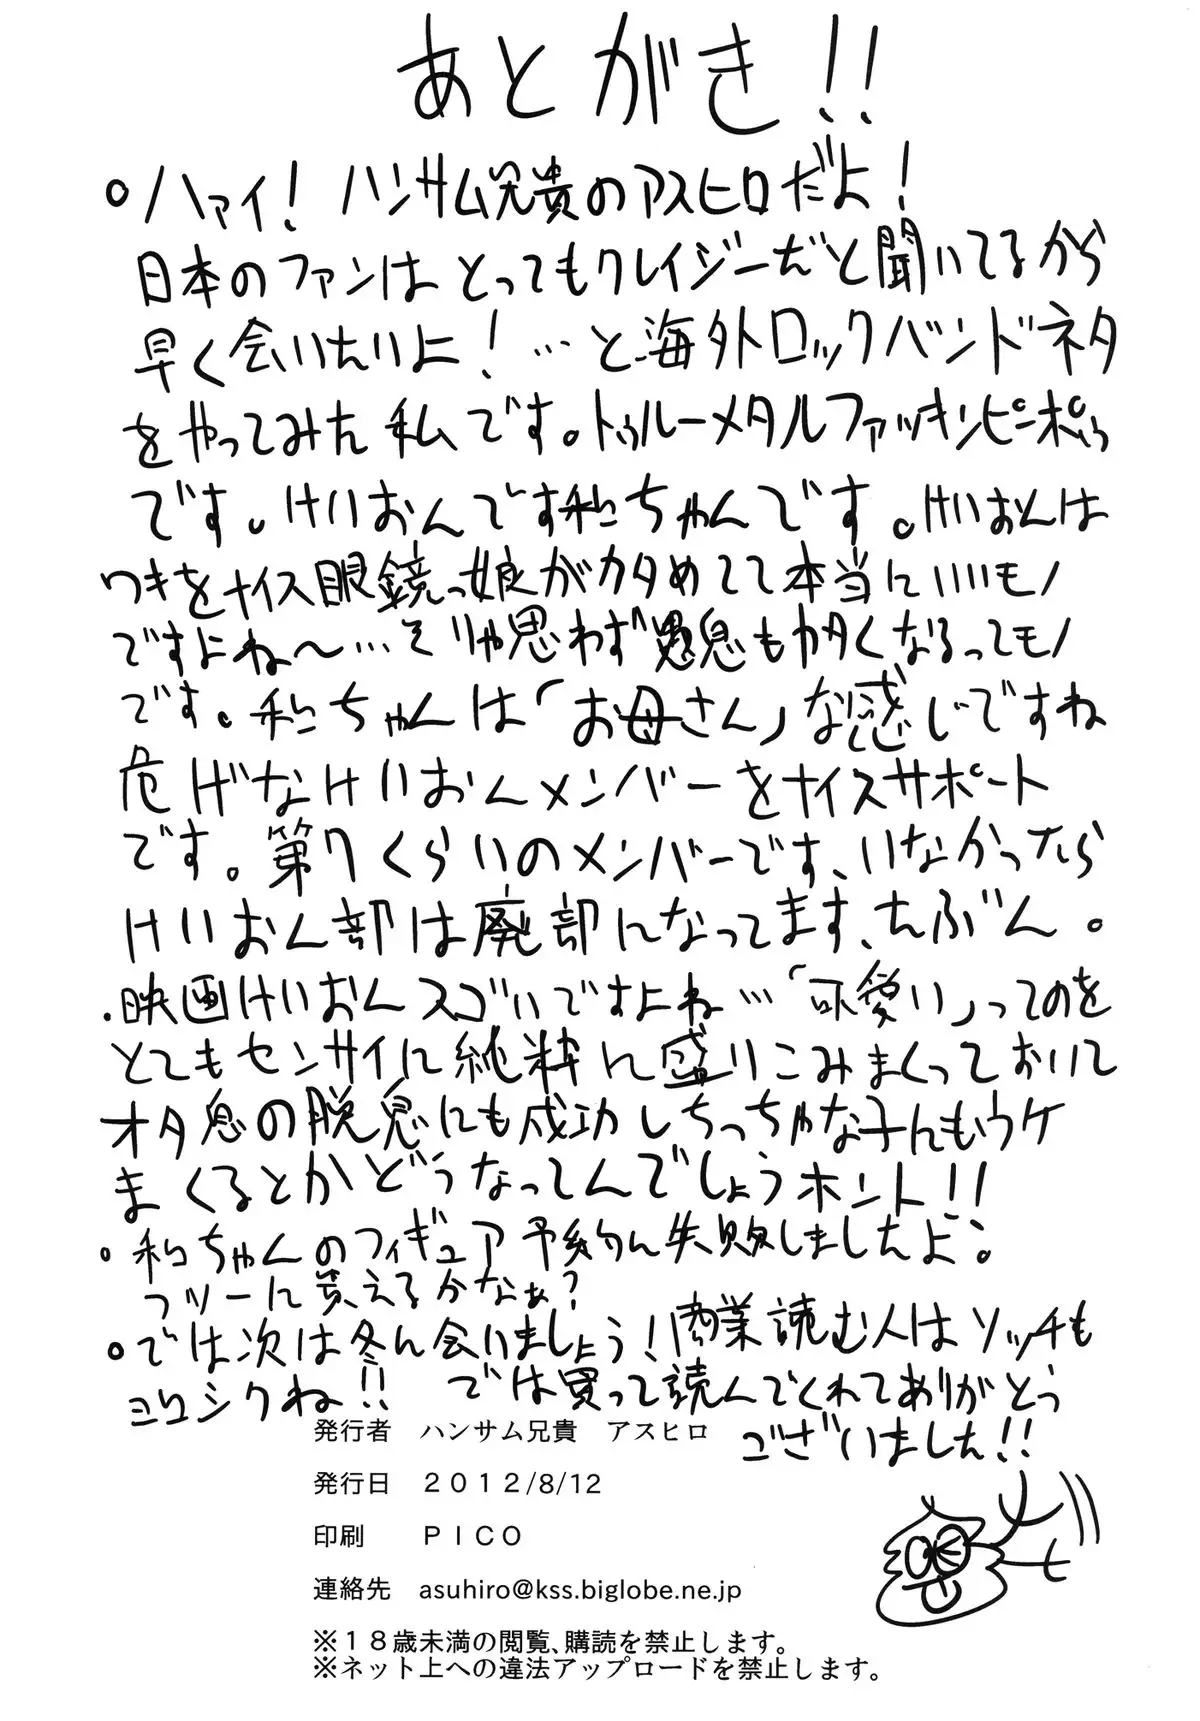 あとがき!!
○ハァイ!ハンサム兄貴のアスヒロだよ!
日本のファンはとってもクレイジーだと聞いてるから
早く会いたいよ!…と海外ロックバンドネタ
をやってみた私です。トゥルーメタルファッキンピンポゥ
です。けいおんです和ちゃんです。けいおんは
ワキをナイス眼鏡っ娘がカタめてて本当にいいモノ
ですよね〜…そりゃ思わず愚息もカタくなるってモノ
です。和ちゃんは「お母さん」な感じですね
危げなけいおんメンバーをナイスサポート
です。第7くらいのメンバーです、いなかったら
けいおん部は廃部になってます、たぶん。
・映画けいおんスゴいですよね…「可愛い」ってのを
とてもセンサイに純粋に盛りこみまくっておいて
オタ息の脱息にも成功しちっちゃな子にもウケ
まくるとかどうなってんでしょうホント!!
○和ちゃんのフィギュア予約に失敗しましたよ。
フツーに買えるかなぁ?
○では次は冬に会いましょう!商業読む人はソッチも
ヨロシクね!!では買って読んでくれてありがとう
ございました!!
発行者 ハンサム兄貴 アスヒロ
発行日 2012/8/12
印刷 PICO
連絡先 asuhiro@kss.biglobe.ne.jp
※18歳未満の閲覧、購読を禁止します。
※ネット上への違法アップロードを禁止します。